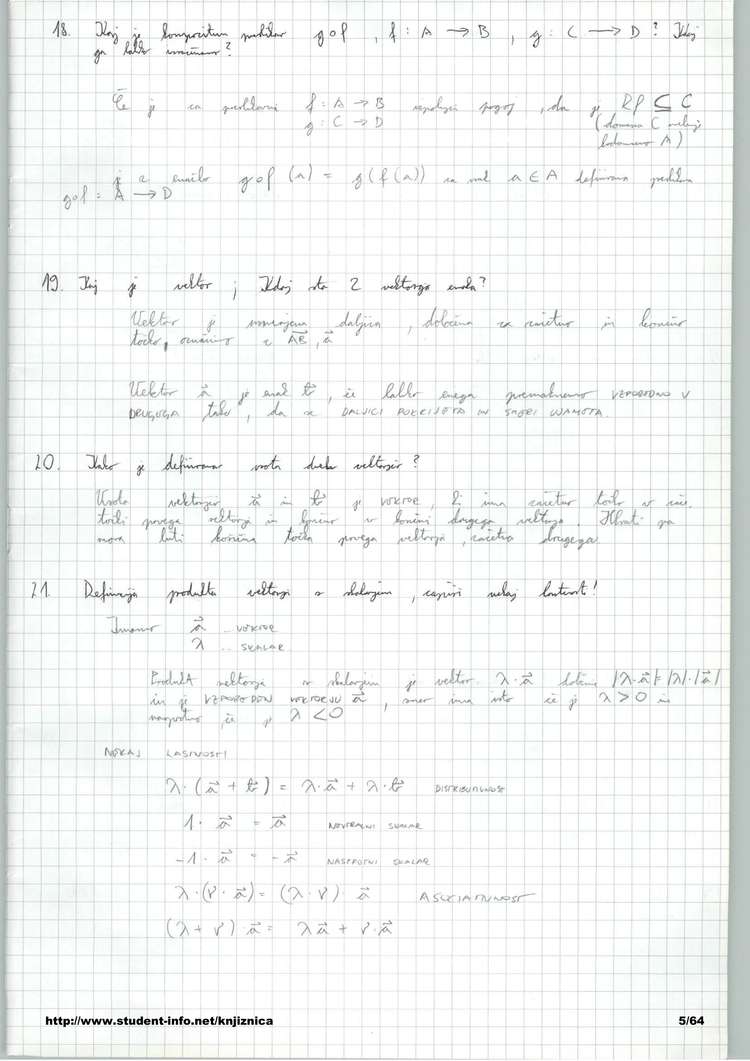 18. Kaj je kompozitum preslikav g∘f , f : A → B , g : C → D ? Kdaj
ga lahko izračunamo?
Če je za preslikavi f : A → B izpolnjen pogoj , da je Rf ⊆ C
g : C → D (domena C
A)
je z enačbo g∘f (a) = g(f(a)) za vsak a ∈ A definirana preslikava
g∘f : A → D
19. Kaj je vektor ; Kdaj sta 2 vektorja enaka?
Vektor je usmerjena daljica , določena za začetno in končno
točko, označimo z AB⃗ , a⃗
Vektor a⃗ je enak b⃗ , če lahko enega premaknemo VZPOREDNO V
DRUGEGA tako , da se DALJICI POKRIJETA IN SMERI UJAMETA.
20. Kako je definirana vsota dveh vektorjev ?
Vsota vektorjev a⃗ in b⃗ je VEKTOR , ki ima začetno točko v zač.
točki prvega vektorja in končno v končni drugega vektorja . Hkrati pa
mora biti končna točka prvega vektorja , začetna drugega
21. Definicija produkta vektorja s skalarjem , zapiši nekaj lastnosti!
Imamo a⃗ .. VEKTOR
λ .. SKALAR
Produkt vektorja s skalarjem je vektor λ·a⃗ |λ·a⃗|=|λ|·|a⃗|
in je VZPOREDEN VEKTORJU a⃗ , smer ima isto če je λ > 0 in
nasprotno če je λ < 0
NEKAJ LASTNOSTI
λ· (a⃗ + b⃗) = λ·a⃗ + λ·b⃗ DISTRIBUTIVNOST
1 · a⃗ = a⃗ NEVTRALNI SKALAR
-1 · a⃗ = -a⃗ NASPROTNI SKALAR
λ·(γ·a⃗) = (λ·γ)· a⃗ ASOCIATIVNOST
(λ + γ) a⃗ = λa⃗ + γ·a⃗
http://www.student-info.net/knjiznica 5/64